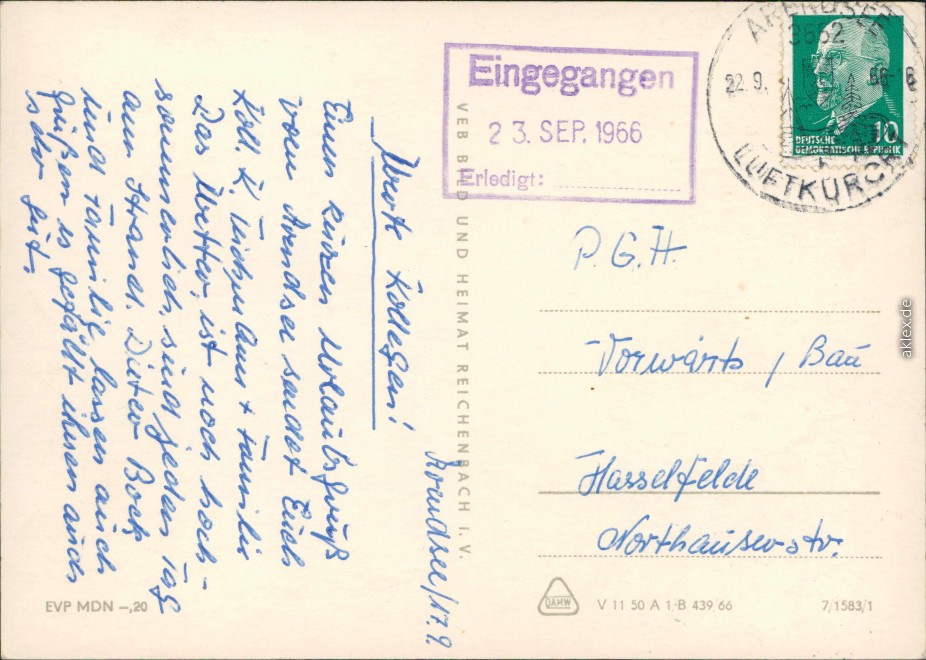 Arendsee/17.9.
Werte Kollegen!
Einen kurzen Urlaubsgruß
vom Arendsee sendet Euch
Koll. K. + Familie
Das Wetter ist noch hoch-
sommerlich, sind jeden Tag
am Strand. Dieter Bock
und Familie lassen auch
grüßen es gefällt ihnen auch
sehr gut.
VEB BILD UND HEIMAT REICHENBACH I. V.
Eingegangen
23. SEP. 1966
Erledigt:
ARENDSEE
3552
22.9. 66-16
LUFTKURORT
10
DEUTSCHE
DEMOKRATISCHE REPUBLIK
P.G.H.
Vorwärts / Bau
Hasselfelde
Northäuserstr.
EVP MDN –,20
DAMW
V 11 50 A 1·B 439/66
7/1583/1
aklex.de